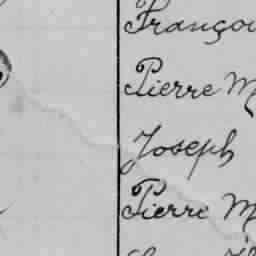 Françoi
Pierre M
Joseph
Pierre M